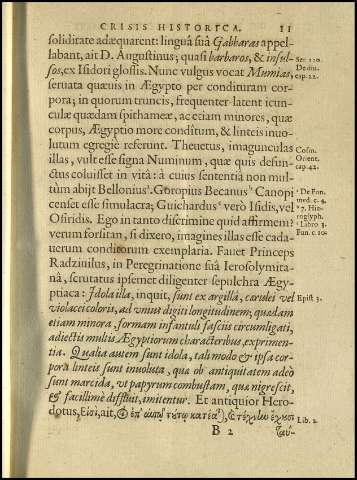 CRISIS HISTORICA. 11
soliditate adæquarent: linguâ suâ Gabbaras appel-
labant, ait D. Augustinus; quasi barbaros, & insul- Ser. 120.
sos, ex Isidori glossis. Nunc vulgus vocat Mumias, De diu.
seruata quæuis in Ægypto per condituram cor- cap. 22.
pora; in quorum truncis, frequenter latent icun-
culæ quædam spithameæ, ac etiam minores, quæ
corpus, Ægyptio more conditum, & linteis inuo-
lutum egregiè referunt. Theuetus, imagunculas Cosm.
illas, vult esse signa Numinum, quæ quis defun- Orient.
ctus coluisset in vitâ: à cuius sententiâ non mul- cap. 42.
tùm abijt Bellonius. Goropius Becanus Canopi De Fun.
censet esse simulacra; Guichardus verò Isidis, vel med. c. 4.
Osiridis. Ego in tanto discrimine quid affirmem? Hie-
roglyph.
verùm forsitan, si dixero, imagines illas esse cada- Libro 3.
uerum conditorum exemplaria. Fauet Princeps Fun. c. 10.
Radziuilus, in Peregrinatione suâ Ierosolymita-
nâ, scrutatus ipsemet diligenter sepulchra Ægy-
ptiaca: Idola illa, inquit, sunt ex argillâ, cærulei vel Epist 3.
violacei coloris, ad vnius digiti longitudinem; quædam
etiam minora, formam infantuli fasciis circumligati,
adiectis multis Ægyptiorum characteribus, exprimen-
tia. Qualia autem sunt idola, tali modo & ipsa cor-
pora linteis sunt inuoluta, quæ ob antiquitatem adeò
sunt marcida, vt papyrum combustam, quæ nigrescit,
& facillimè diffluit, imitentur. Et antiquior Hero-
dotus, Εἰσὶ, ait, ἐπ' αὐτῷ τούτῳ κατέαται, καὶ τέχνην ἔχουσι Lib. 2.
B 2 ταύ-